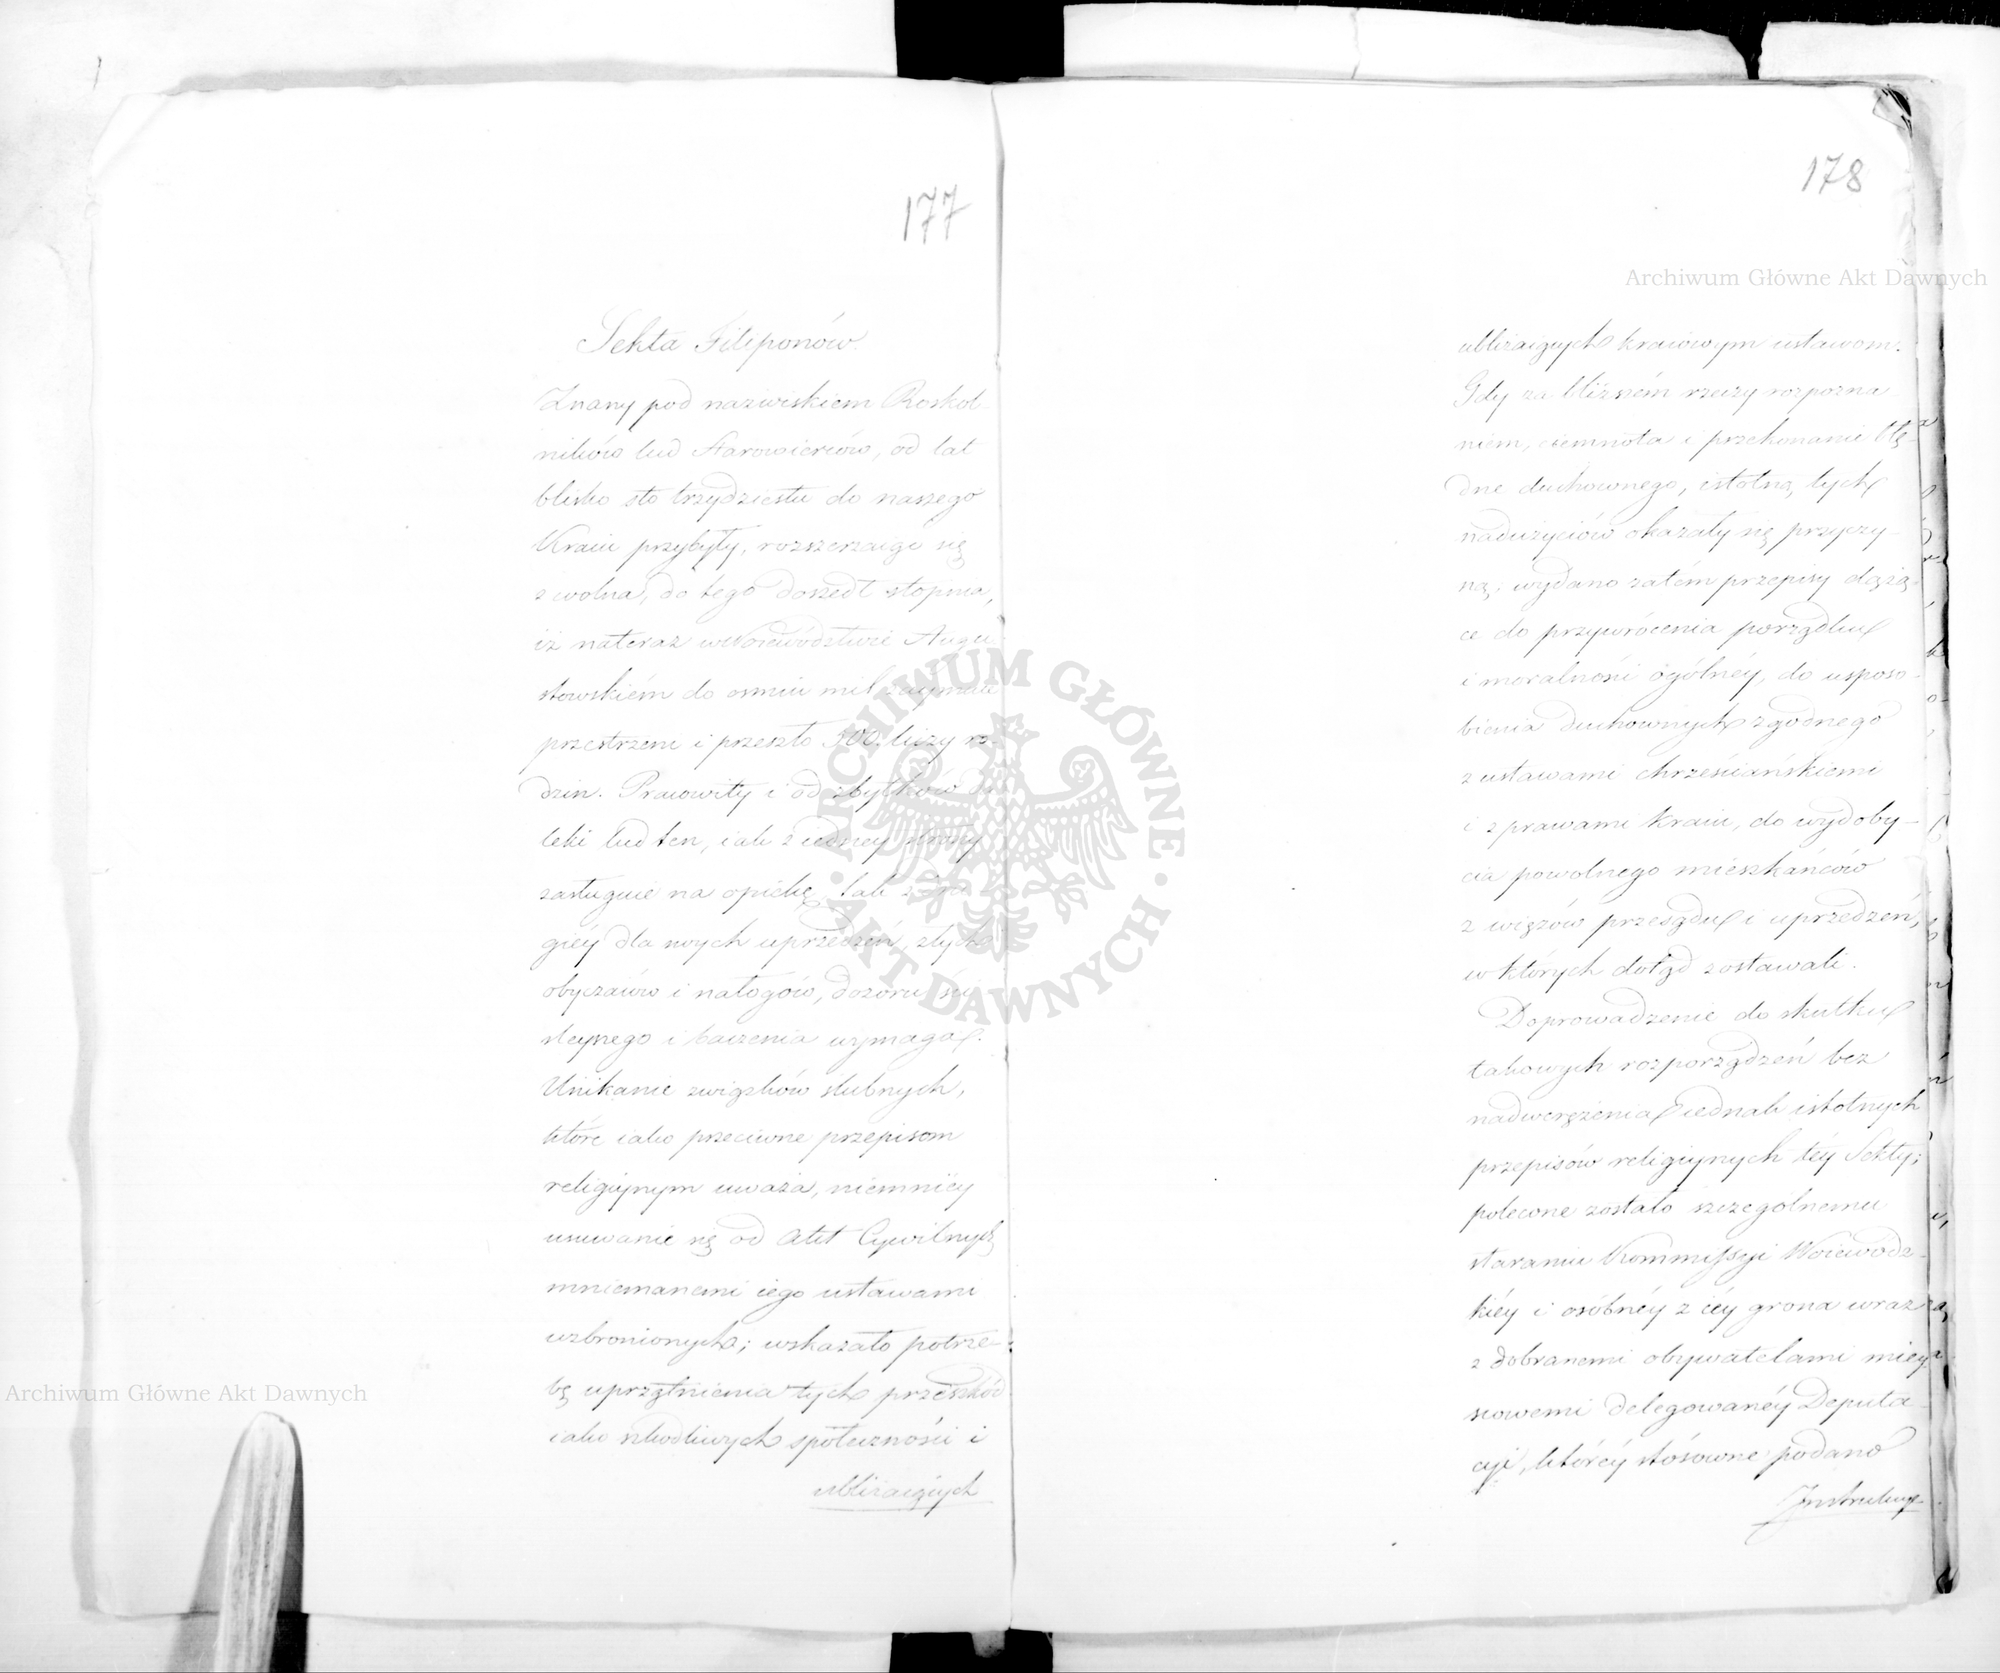 177
Sekta Filiponów.
Znany pod nazwiskiem Roskol-
ników lud Starowierców, od lat
blisko sto trzydziestu do naszego
Kraiu przybyły, rozszerzaiąc się
zwolna, do tego doszedł stopnia,
iż nateraz w Woiewództwie Augu-
stowskiém do ośmiu mil zaymuie
przestrzeni i przeszło 500. liczy ro-
dzin. Pracowity i od zbytków da-
leki lud ten, iak z iedney strony
zasługuie na opiekę, tak z dru-
giéy dla swych uprzedzeń, złych
obyczaiów i nałogów, dozoru ści-
słeyszego i baczenia wymaga.
Unikanie związków ślubnych,
które iako przeciwne przepisom
religiynym uważa, niemniéy
usuwanie się od Akt Cywilnych
mniemanemi iego ustawami
wzbronionych; wskazało potrze-
bę uprzątnienia tych przeszkód
iako szkodliwych społeczności i
ubliżaiących
178
ubliżaiących kraiowym ustawom.
Gdy za bliższém rzeczy rozpozna-
niem, ciemnota i przekonanie błę-
dne duchownego, istotną tych
nadużyciów okazały się przyczy-
ną; wydano zatém przepisy dążą-
ce do przywrócenia porządku
i moralności ogólnéy, do usposo-
bienia duchownych zgodnego
z ustawami chrześciańskiemi
i z prawami kraiu, do wydoby-
cia powolnego mieszkańców
z więzów przesądu i uprzedzeń,
w których dotąd zostawali.
Doprowadzenie do skutku
takowych rozporządzeń bez
nadwerężenia iednak istotnych
przepisów religiynych téy Sekty;
polecone zostało szczególnemu
staraniu Kommissyi Woiewódz-
kiéy i osóbnéy z iéy grona wraz
z dobranemi obywatelami miey-
scowemi delegowanéy Deputa-
cyi, któréy stósowne podano
Instrukcye
Archiwum Główne Akt Dawnych
Archiwum Główne Akt Dawnych
ARCHIWUM GŁÓWNE · AKT DAWNYCH ·